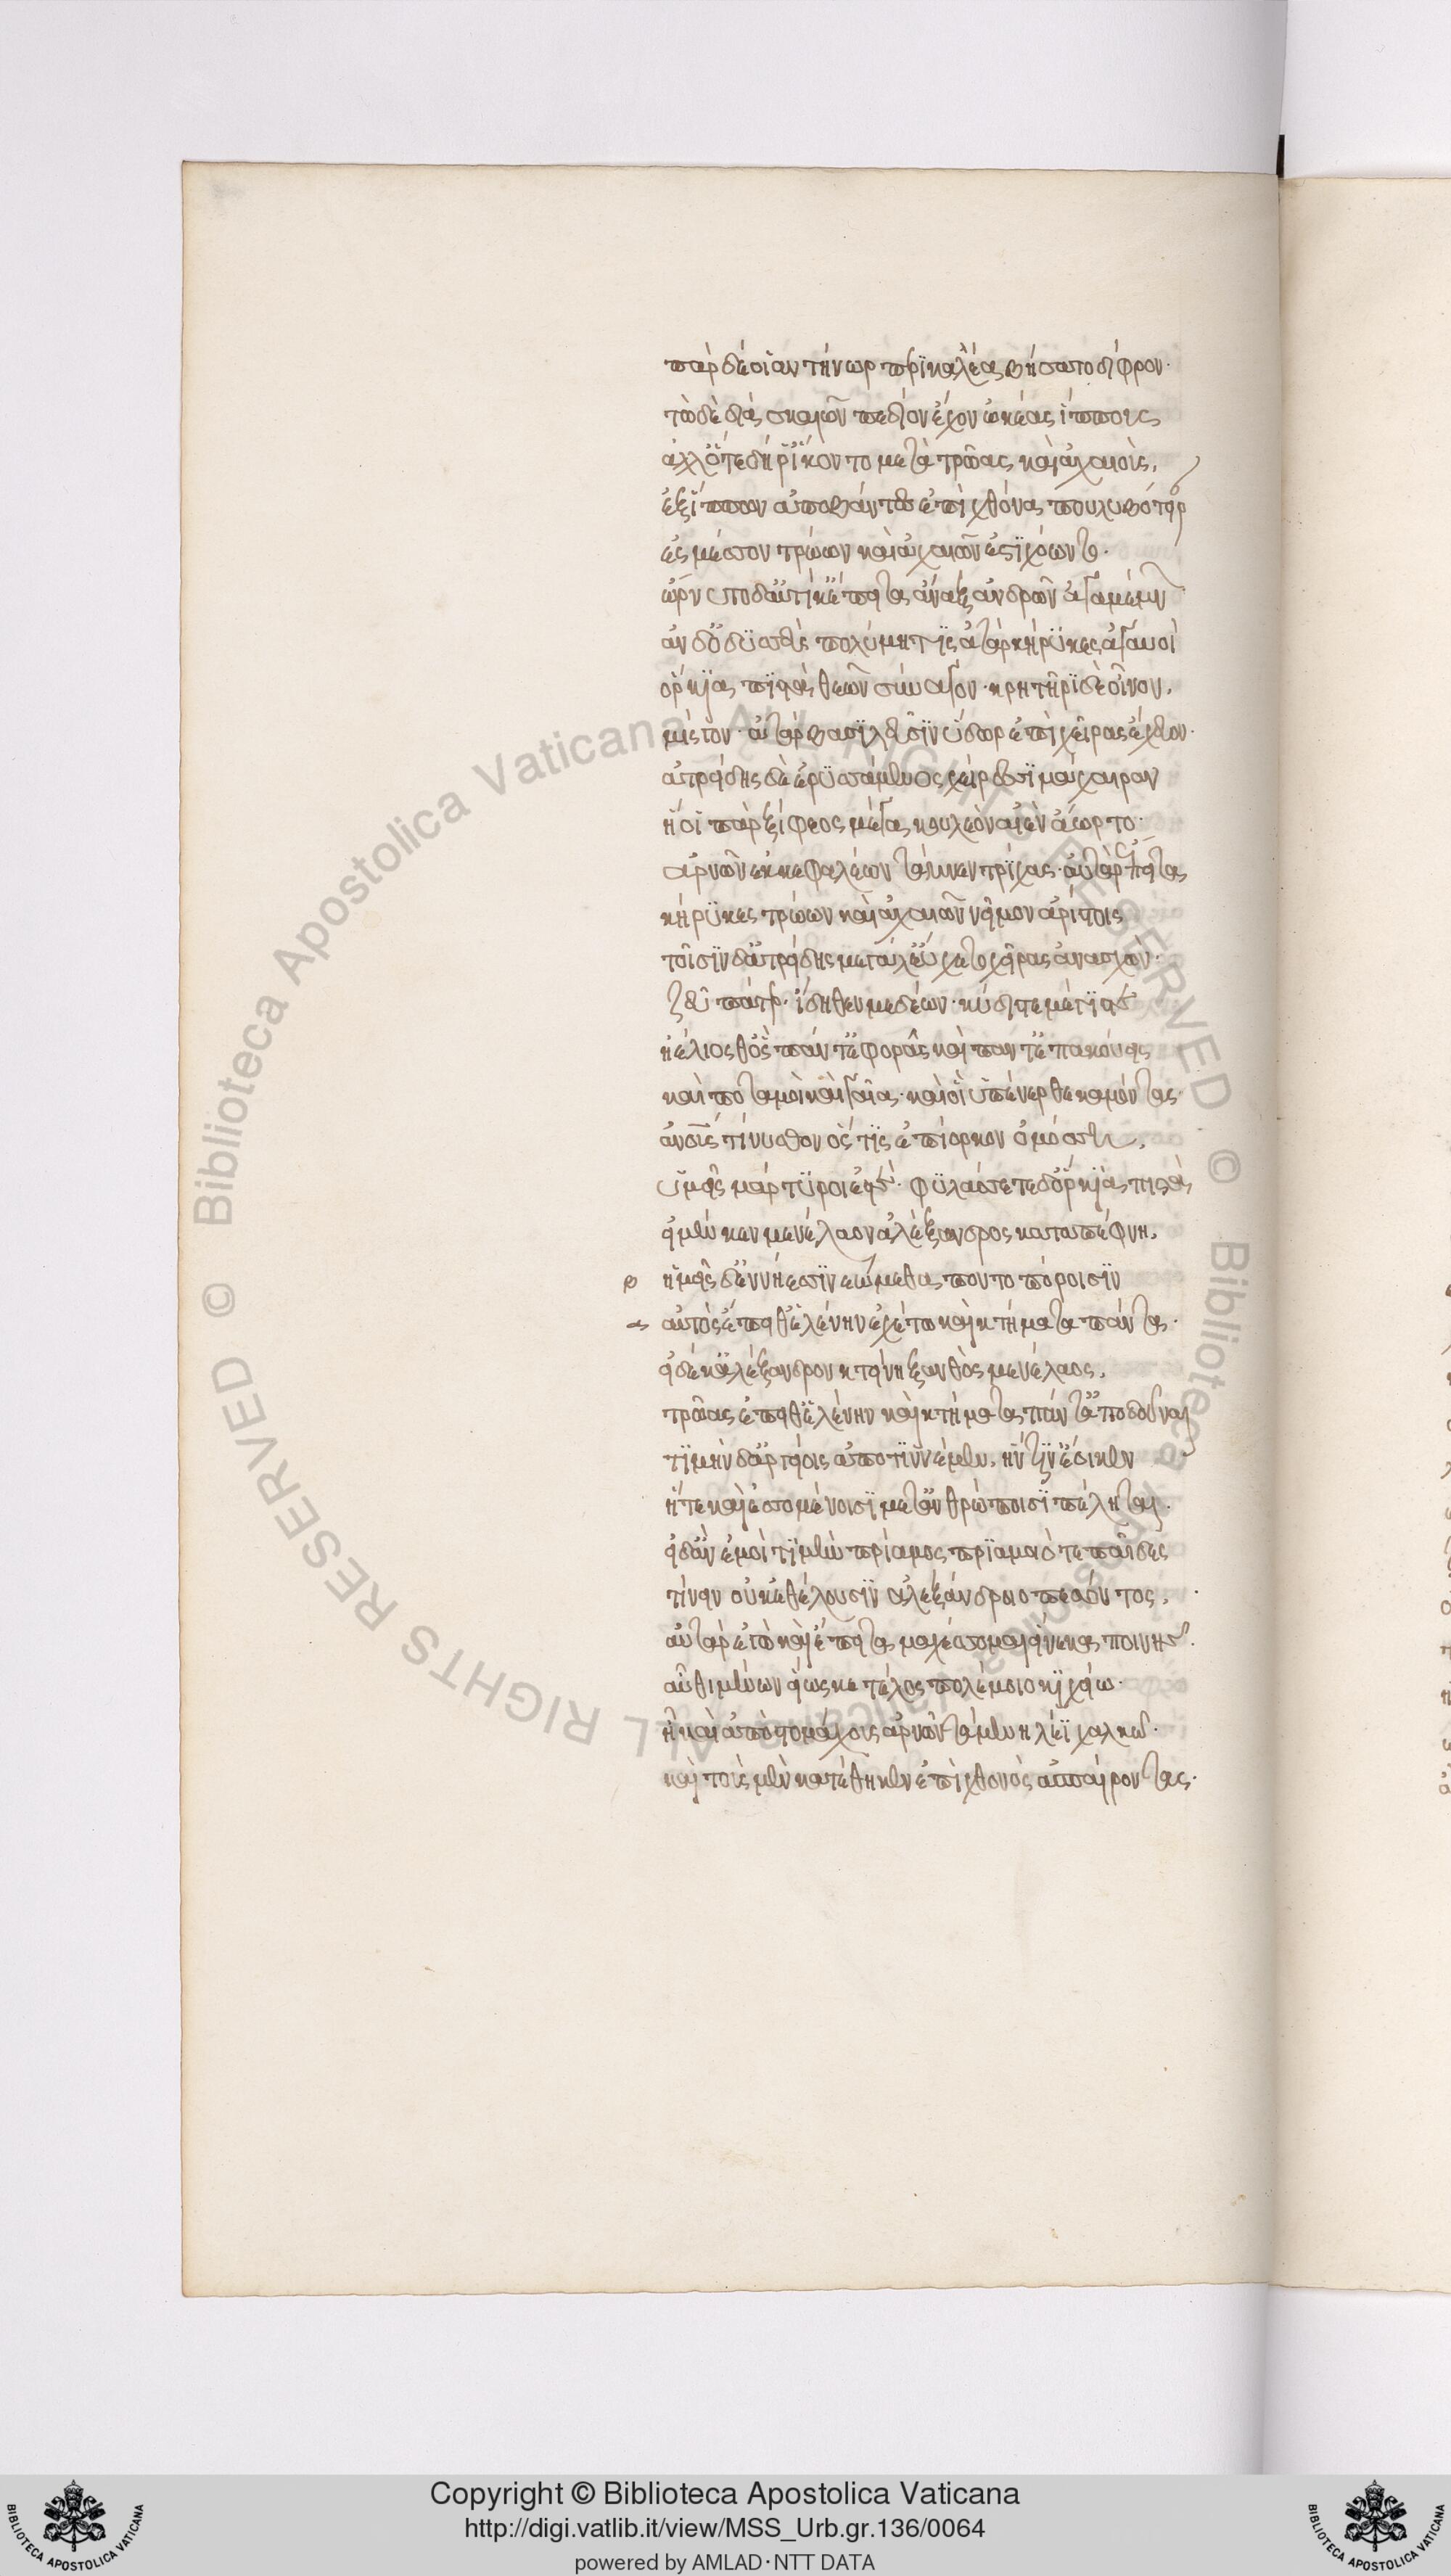 παρ δέ οἱ ἀντήνωρ περικαλλέα βήσατο δίφρον·
τὼ δὲ διὰ σκαιῶν πεδίον ἔχον ὠκέας ἵππους
ἀλλ' ὅτε δή ῥ' ἵκοντο μετὰ τρῶας καὶ ἀχαιούς,
ἐξ ἵππων ἀποβάντες ἐπὶ χθόνα πουλυβότειραν
ἐς μέσσον τρώων καὶ ἀχαιῶν ἐστιχόωντο·
ὤρνυτο δ' αὐτίκ' ἔπειτα ἄναξ ἀνδρῶν ἀγαμέμνων
ἂν δ' ὀδυσεὺς πολύμητις ἀτὰρ κήρυκες ἀγαυοὶ
ὅρκια πιστὰ θεῶν σύναγον· κρητῆρι δὲ οἶνον,
μίσγον· ἀτὰρ βασιλεῦσιν ὕδωρ ἐπὶ χεῖρας ἔχευον·
ἀτρείδης δὲ ἐρυσσάμενος χείρεσσι μάχαιραν
ἥ οἱ πὰρ ξίφεος μέγα κουλεὸν αἰὲν ἄωρτο·
ἀρνῶν ἐκ κεφαλέων τάμνεν τρίχας· αὐτὰρ ἔπειτα
κήρυκες τρώων καὶ ἀχαιῶν νεῖμαν ἀρίστοις
τοῖσιν δ' ἀτρείδης μεγάλ' εὔχετο χεῖρας ἀνασχών·
ζεῦ πάτερ· ἴδηθεν μεδέων· κύδιστε μέγιστε
ἠέλιος θ' ὃς πάντ' ἐφορᾷς καὶ πάντ' ἐπακούεις
καὶ ποταμοὶ καὶ γαῖα· καὶ οἳ ὑπένερθε καμόντας
ἀνους τίνυσθον ὅς τις ἐπίορκον ὀμόσσῃ,
ὑμεῖς μάρτυροι ἐστὲ· φυλάσσετε δ' ὅρκια πιστὰ
εἰ μέν κεν μενέλαον ἀλέξανδρος καταπέφνῃ,
β ἡμεῖς δ' ἐν νήεσσιν νεώμεθα ποντοπόροισιν
α αὐτὸς ἔπειθ' ἑλένην ἐχέτω καὶ κτήματα πάντα·
εἰ δέ κ' ἀλέξανδρον κτείνῃ ξανθὸς μενέλαος,
τρῶας ἔπειθ' ἑλένην καὶ κτήματα πάντ' ἀποδοῦναι
τιμὴν δ' ἀργείοις ἀποτινέμεν, ἥν τιν' ἔοικεν
ἥ τε καὶ ἐσσομένοισι μετ' ἀνθρώποισι πέληται·
εἰ δ' ἂν ἐμοὶ τιμὴν πρίαμος πριάμοιό τε παῖδες
τίνειν οὐκ ἐθέλουσιν ἀλεξάνδροιο πεσόντος,
αὐτὰρ ἐγὼ καὶ ἔπειτα μαχέσσομαι εἵνεκα ποινῆς·
αὖθι μένων εἵως κε τέλος πολέμοιο κιχείω·
ἦ καὶ ἀπὸ στομάχους ἀρνῶν τάμε νηλέϊ χαλκῷ·
καὶ τοὺς μὲν κατέθηκεν ἐπὶ χθονὸς ἀσπαίροντας·
Copyright © Biblioteca Apostolica Vaticana
http://digi.vatlib.it/view/MSS_Urb.gr.136/0064
powered by AMLAD·NTT DATA